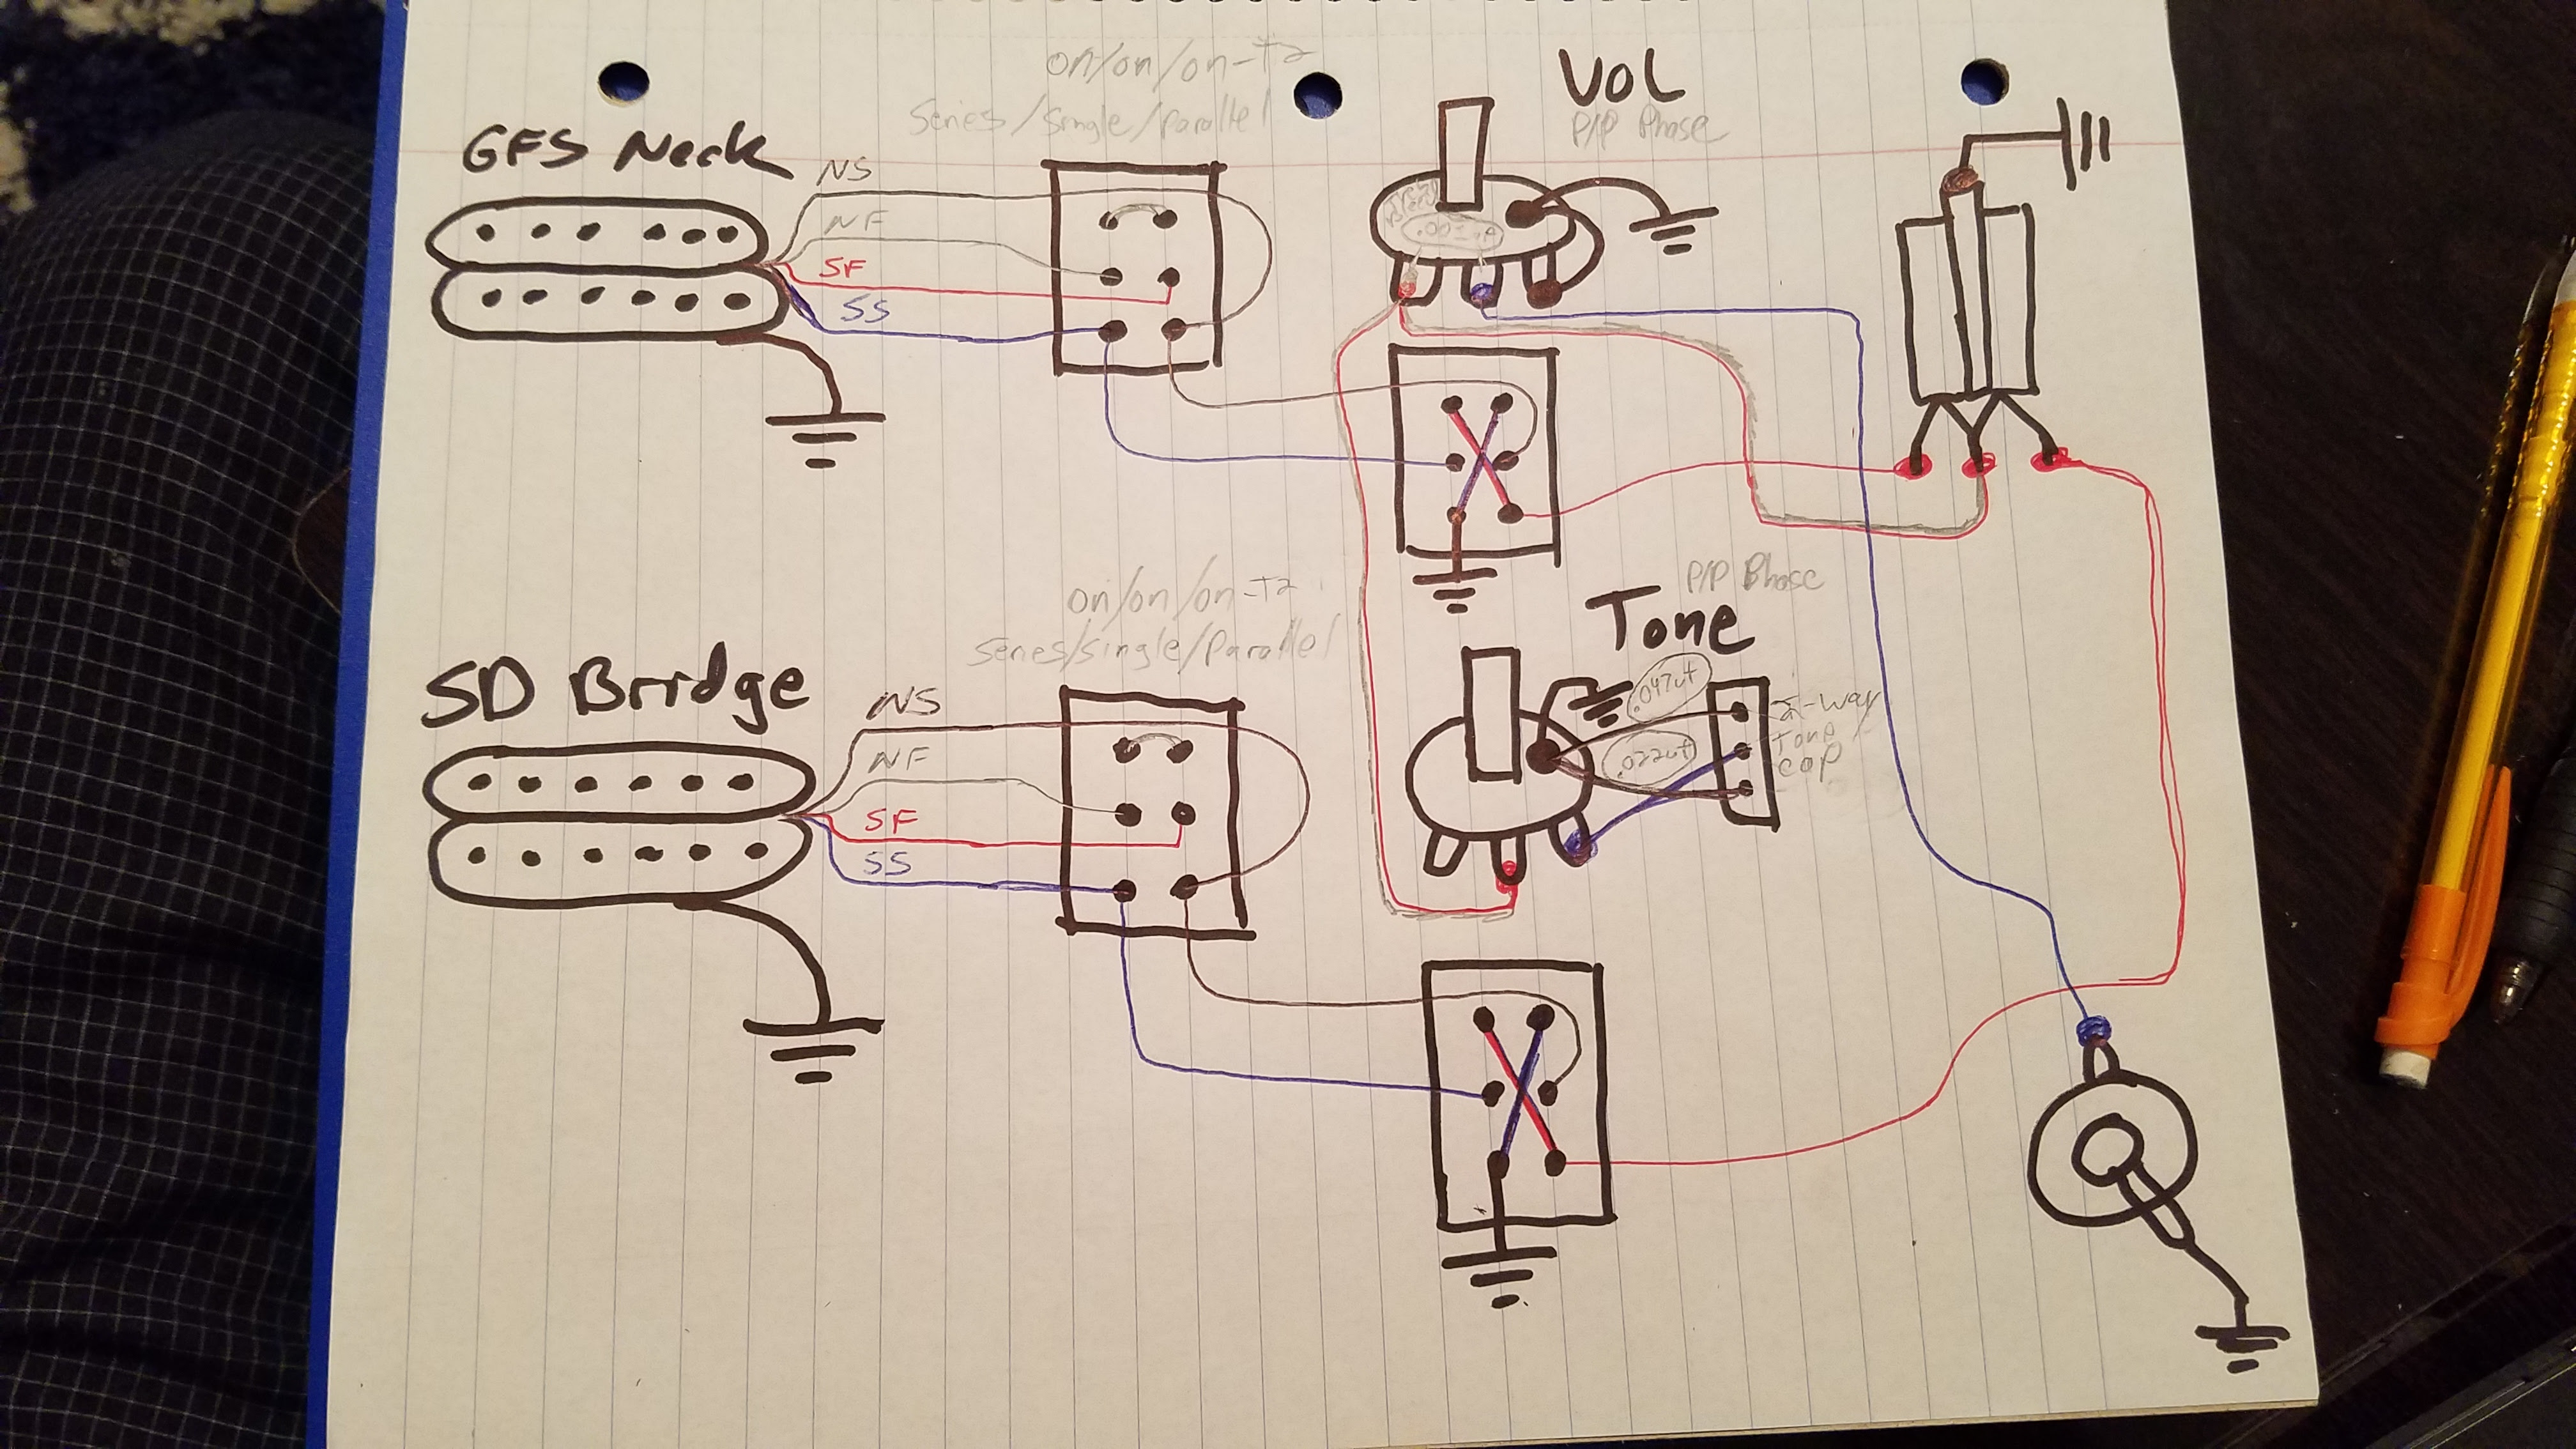 on/on/on-T2
series/single/parallel
VOL
P/P Phase
GFS Neck
NS
NF
SF
SS
P/P Bhase
Tone
on/on/on-T2
series/single/parallel
.047uf
.022uf
Tone
cap
SD Brrdge
NS
NF
SF
SS